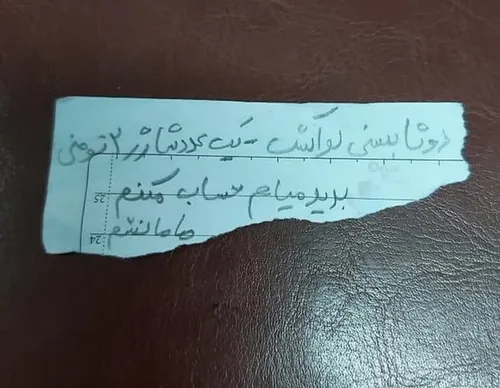 دوتا بستنی لواکش - یک عدد شارژ ۲ تومنی
بدید میام حساب میکنم
مامانشم
25
24